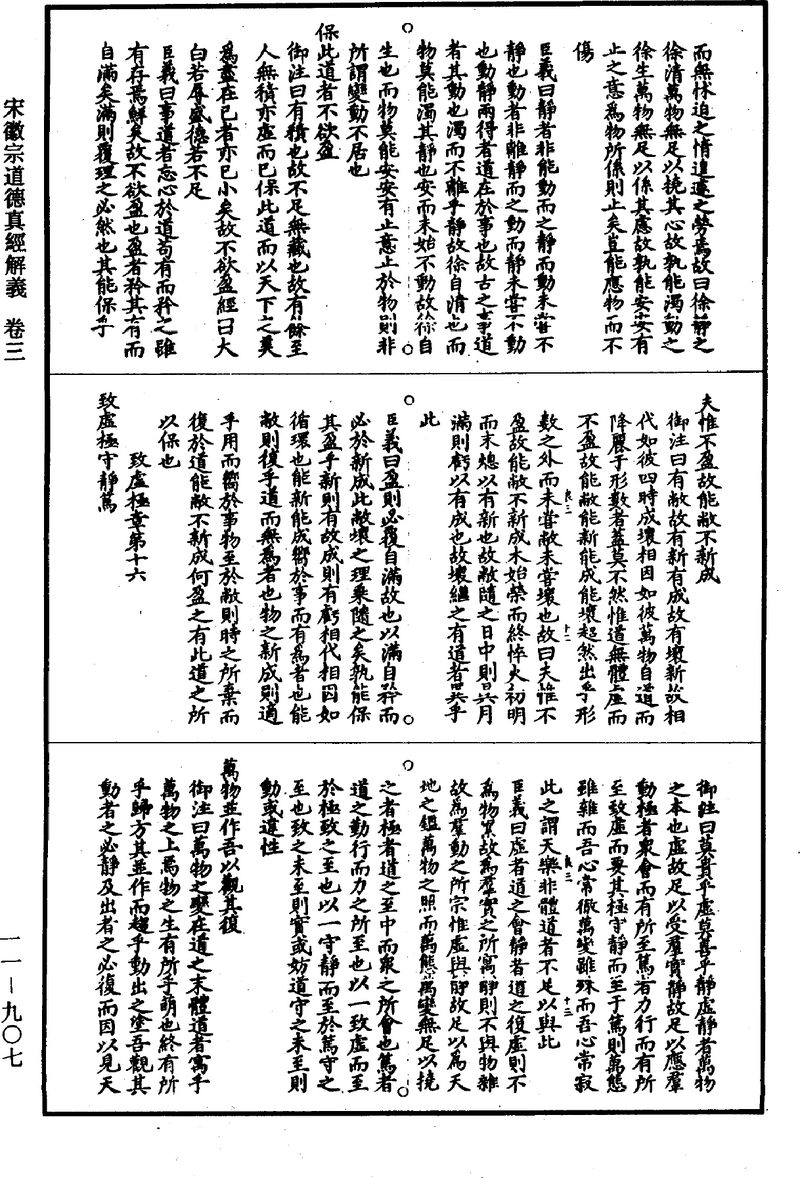 宋徽宗道德真經解義　卷三
一一－九〇七
而無怵迫之情遑遽之勞焉故曰徐靜之
徐清萬物無足以撓其心故孰能濁動之
徐生萬物無足以係其應故孰能安安有
止之意為物所係則止矣豈能應物而不
傷
臣義曰靜者非能動而之靜而動未嘗不
靜也動者非離靜而之動而靜未嘗不動
也動靜兩得者道在於事也故古之事道
者其動也濁而不離乎靜故徐自清也而
物莫能濁其靜也安而未始不動故徐自
生也而物莫能安安有止意止於物則非
所謂變動不居也
保此道者不欲盈
御注曰有積也故不足無藏也故有餘至
人無積亦虛而已保此道而以天下之美
為盡在已者亦已小矣故不欲盈經曰大
白若辱盛德若不足
臣義曰事道者忘心於道苟有而矜之雖
有存焉鮮矣故不欲盈也盈者矜其有而
自滿矣滿則覆理之必然也其能保乎
夫惟不盈故能敝不新成
御注曰有敝故有新有成故有壞新故相
代如彼四時成壞相因如彼萬物自道而
降麗于形數者蓋莫不然惟道無體虛而
不盈故能敝能新能成能壞超然出乎形
數之外而未嘗敝未嘗壞也故曰夫惟不
盈故能敝不新成木始榮而終悴火初明
而末熄以有新也故敝隨之日中則昃月
滿則虧以有成也故壞繼之有道者異乎
此
臣義曰盈則必覆自滿故也以滿自矜而
必於新成此敝壞之理乘隨之矣孰能保
其盈乎新則有故成則有虧相代相因如
循環也能新能成嚮於事而有為者也能
敝則復乎道而無為者也物之新成則適
乎用而嚮於事物至於敝則時之所棄而
復於道能敝不新成何盈之有此道之所
以保也
致虛極章第十六
致虛極守靜篤
御注曰莫貴乎虛莫善乎靜虛靜者萬物
之本也虛故足以受羣實靜故足以應羣
動極者衆會而有所至篤者力行而有所
至致虛而要其極守靜而至于篤則萬態
雖雜而吾心常徹萬變雖殊而吾心常寂
此之謂天樂非體道者不足以與此
臣義曰虛者道之會靜者道之復虛則不
為物實故為羣實之所寓靜則不與物雜
故為羣動之所宗惟虛與靜故足以為天
地之鑑萬物之照而萬態萬變無足以撓
之者極者道之至中而衆之所會也篤者
道之勤行而力之所至也以一致虛而至
於極致之至也以一守靜而至於篤守之
至也致之未至則實或妨道守之未至則
動或違性
萬物並作吾以觀其復
御注曰萬物之變在道之末體道者寓乎
萬物之上焉物之生有所乎萌也終有所
乎歸方其並作而趨乎動出之塗吾觀其
動者之必靜及出者之必復而因以見天